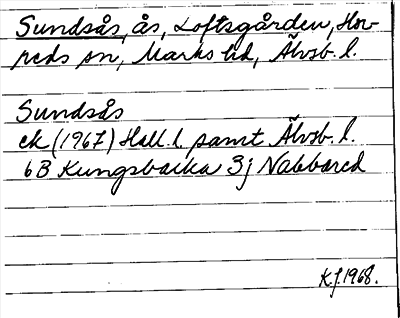 Sundsås, ås, Loftsgården, Hov-
reds sn, Marks hd, Älvsb. l.
Sundsås
ek (1967) Hall. l. samt Älvsb. l.
6B Kungsbacka 3j Nabbared
K.J. 1968.